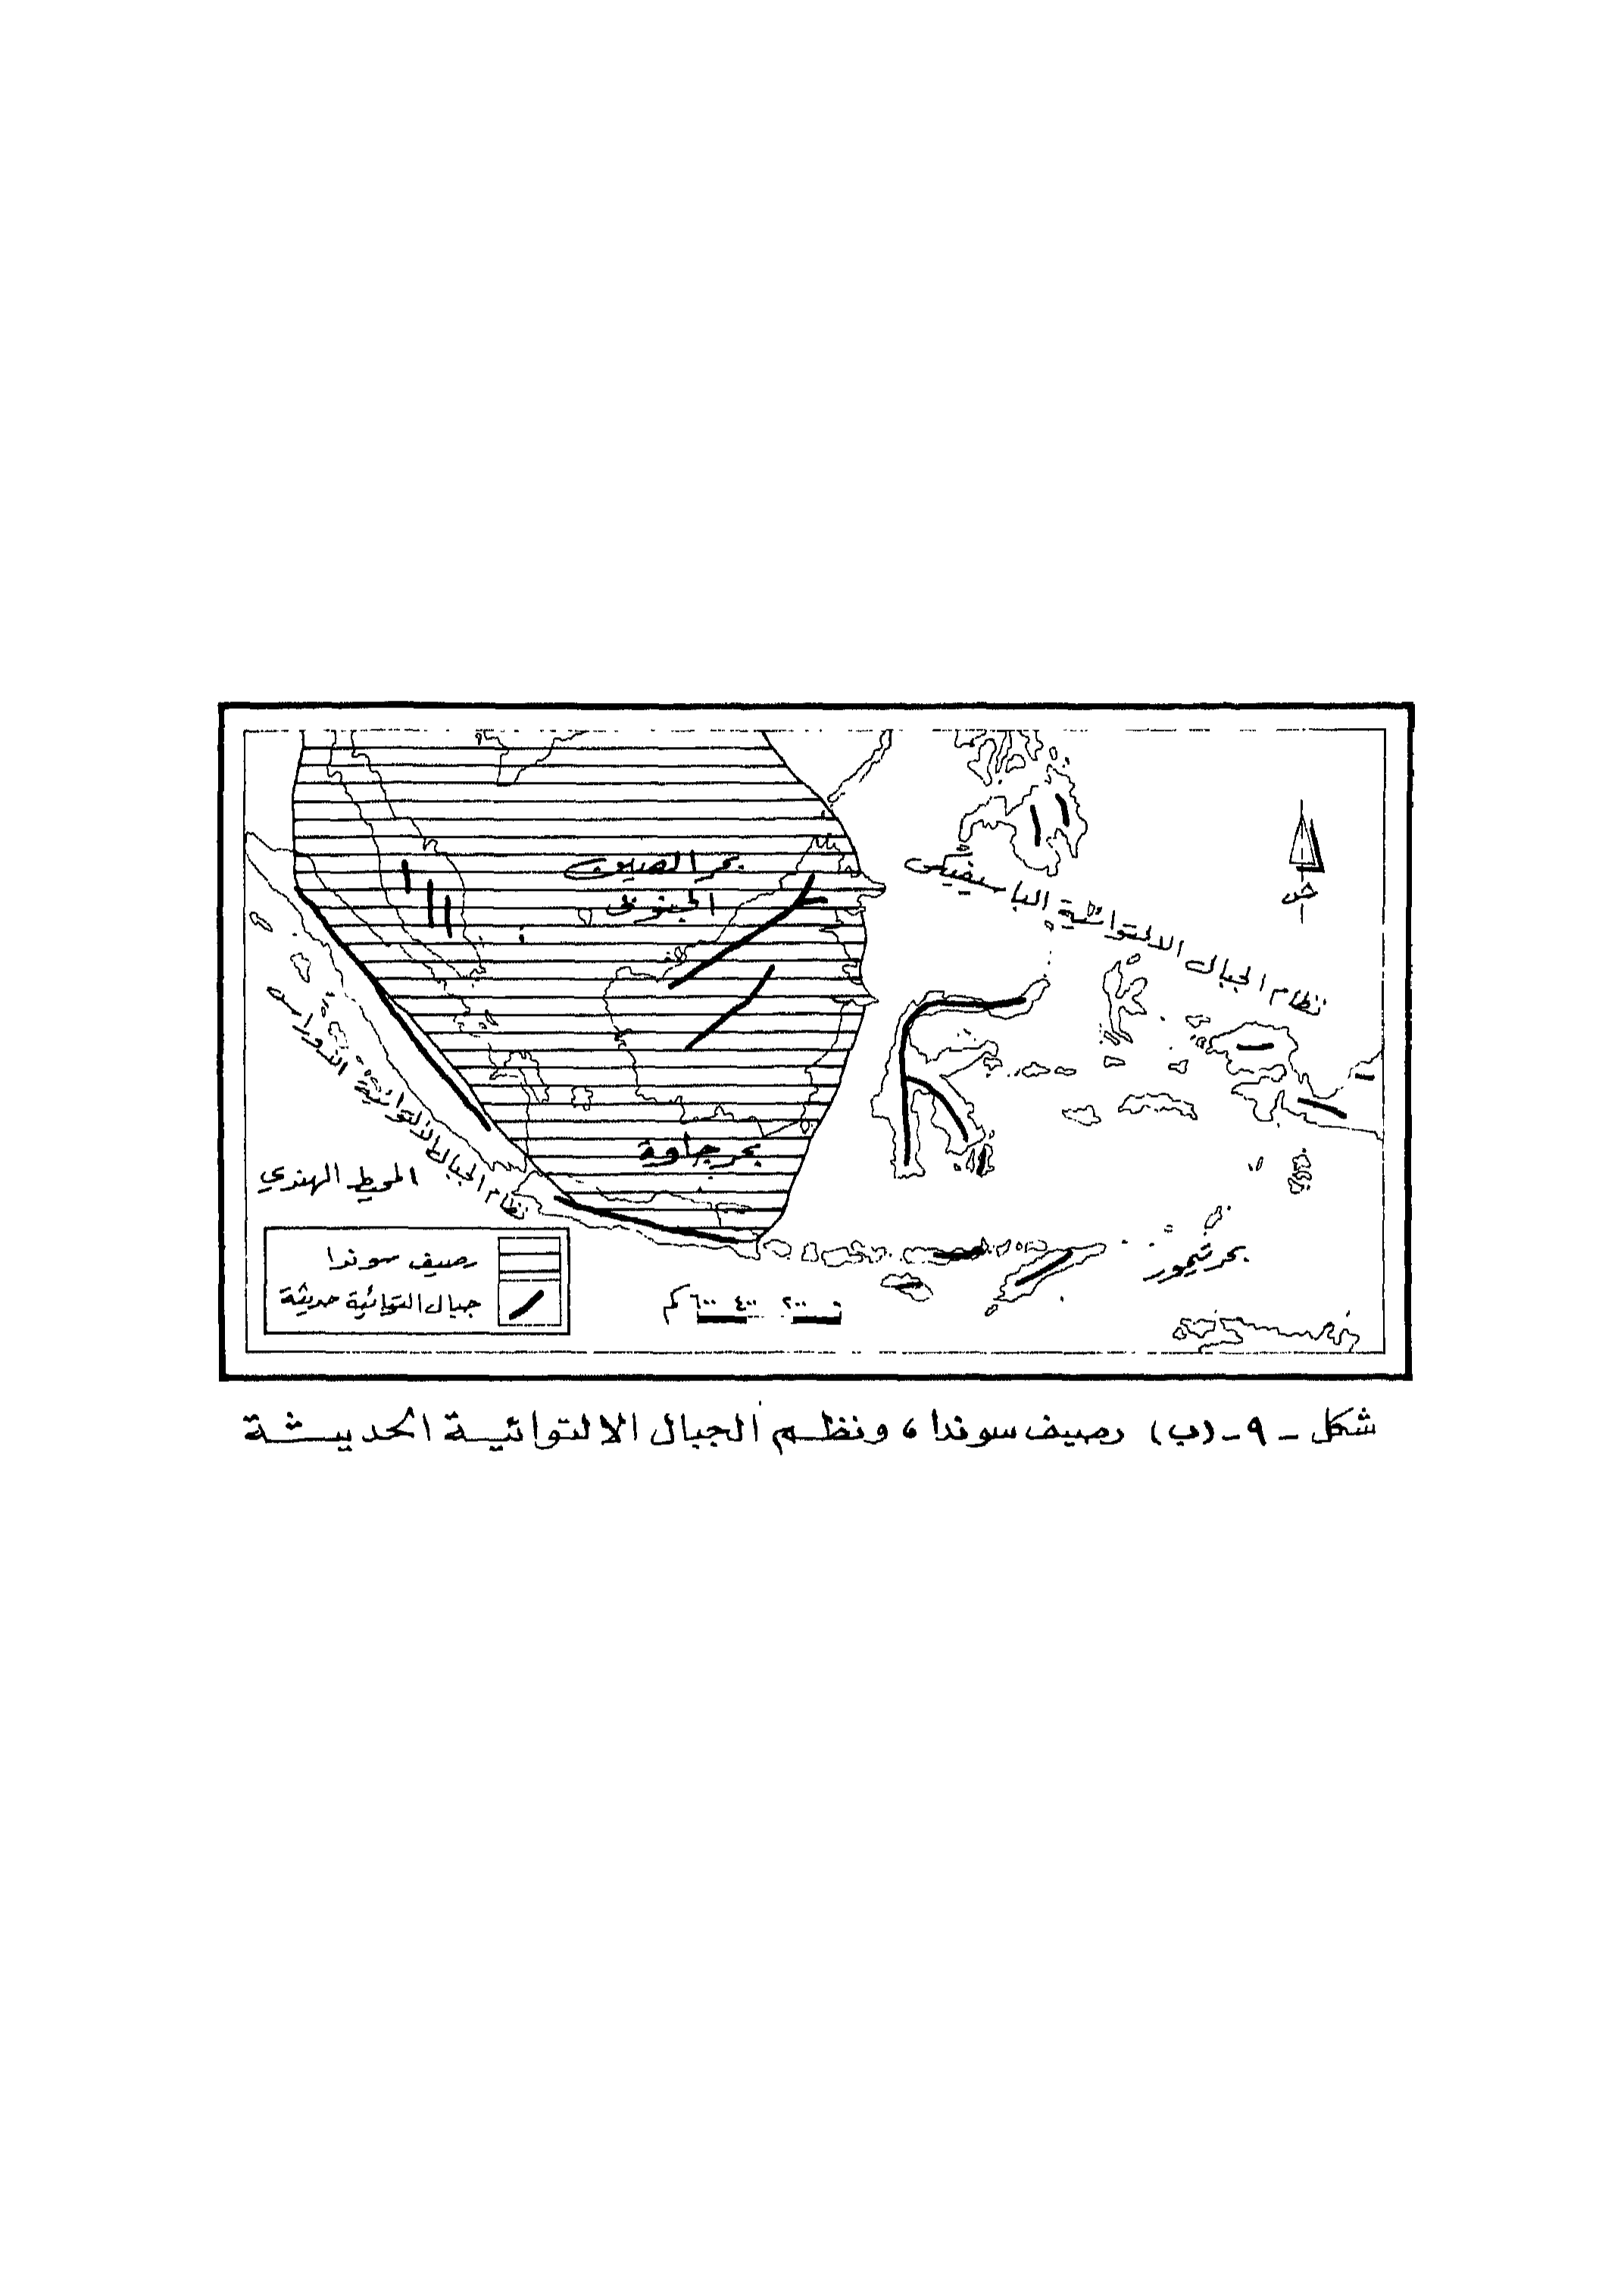 بحر الصين
الجنوبى
نظام الجبال الالتوائية الباسيفيكى
ش
نظام الجبال الالتوائية
المحيط الهندي
بحر جاوة
بحر تيمور
رصيف سوندا
جبال التوائية حديثة
٠ ٢٠٠ ٤٠٠ ٦٠٠ كم
شكل - ٩ - (ب) رصيف سوندا، ونظم الجبال الالتوائية الحديثة